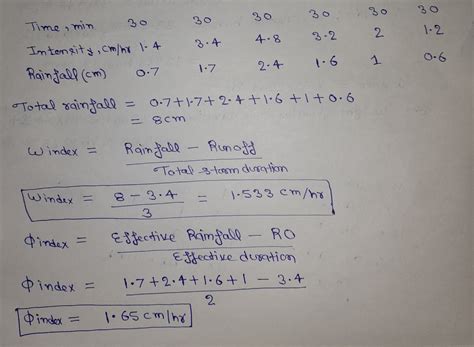 Time, min 30 30 30 30 30 30
Intensity, cm/hr 1.4 3.4 4.8 3.2 2 1.2
Rainfall (cm) 0.7 1.7 2.4 1.6 1 0.6
Total rainfall = 0.7+1.7+2.4+1.6+1+0.6
= 8cm
W index = Rainfall - Runoff
Total storm duration
W index = 8 - 3.4 = 1.533 cm/hr
3
Φ index = Effective Rainfall - RO
Effective duration
Φ index = 1.7+2.4+1.6+1 - 3.4
2
Φ index = 1.65 cm/hr